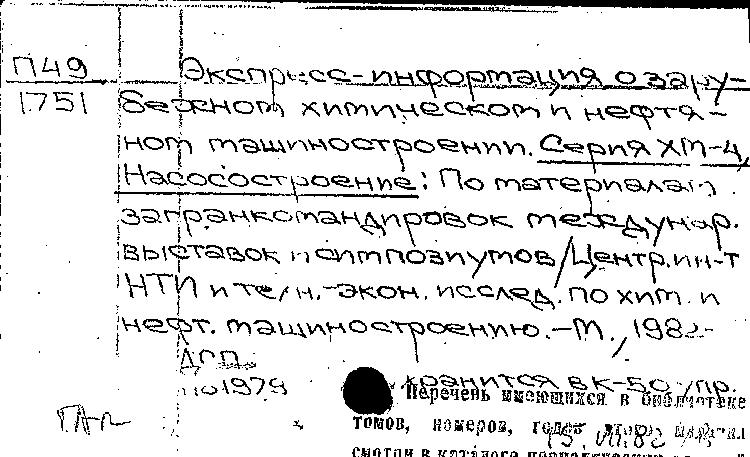 П49 Экспресс-информация о зару-
1751 бежном химическом и нефтя-
ном машиностроении. Серия ХМ-4,
Насосостроение: По материалам
загранкомандировок междунар.
выставок и симпозиумов/Центр. ин-т
НТИ и техн.-экон. исслед. по хим. и
нефт. машиностроению.-М., 1982-
ДСП
по 1979 хранится в К-50-/пр.
Перечень имеющихся в библиотеке
томов, номеров, годов
смотри в каталоге